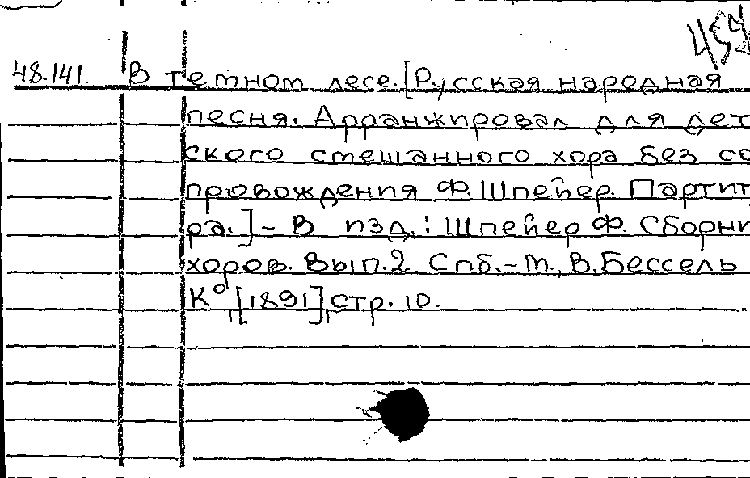 459
48.141 В темном лесе. [Русская народная
песня. Арранжировал для дет
ского смешанного хора без со
провождения Ф. Шпейер. Партит
ра.] - В изд.: Шпейер Ф. Сборни
хоров. Вып. 2. Спб.-М., В. Бессель
К°, [1891], стр. 10.